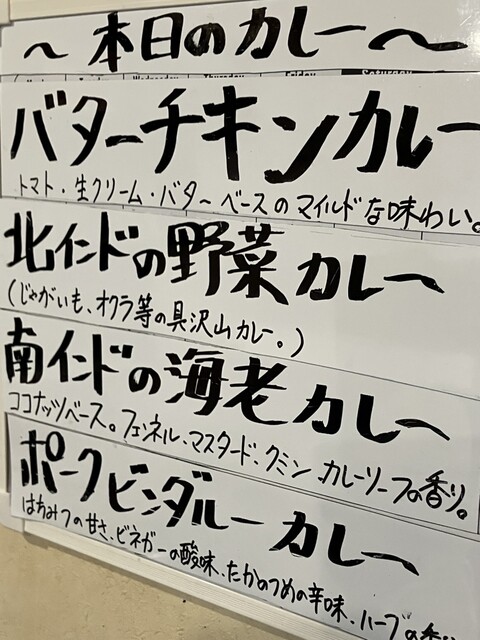 〜本日のカレー〜
Wednesday Thursday Friday Saturday
バターチキンカレー
トマト・生クリーム・バターベースのマイルドな味わい。
北インドの野菜カレー
(じゃがいも、オクラ等の具沢山カレー。)
南インドの海老カレー
ココナッツベース。フェンネル、マスタード、クミン カレーリーフの香り。
ポークビンダルーカレー
はちみつの甘さ、ビネガーの酸味、たかのつめの辛味、ハーブの香り